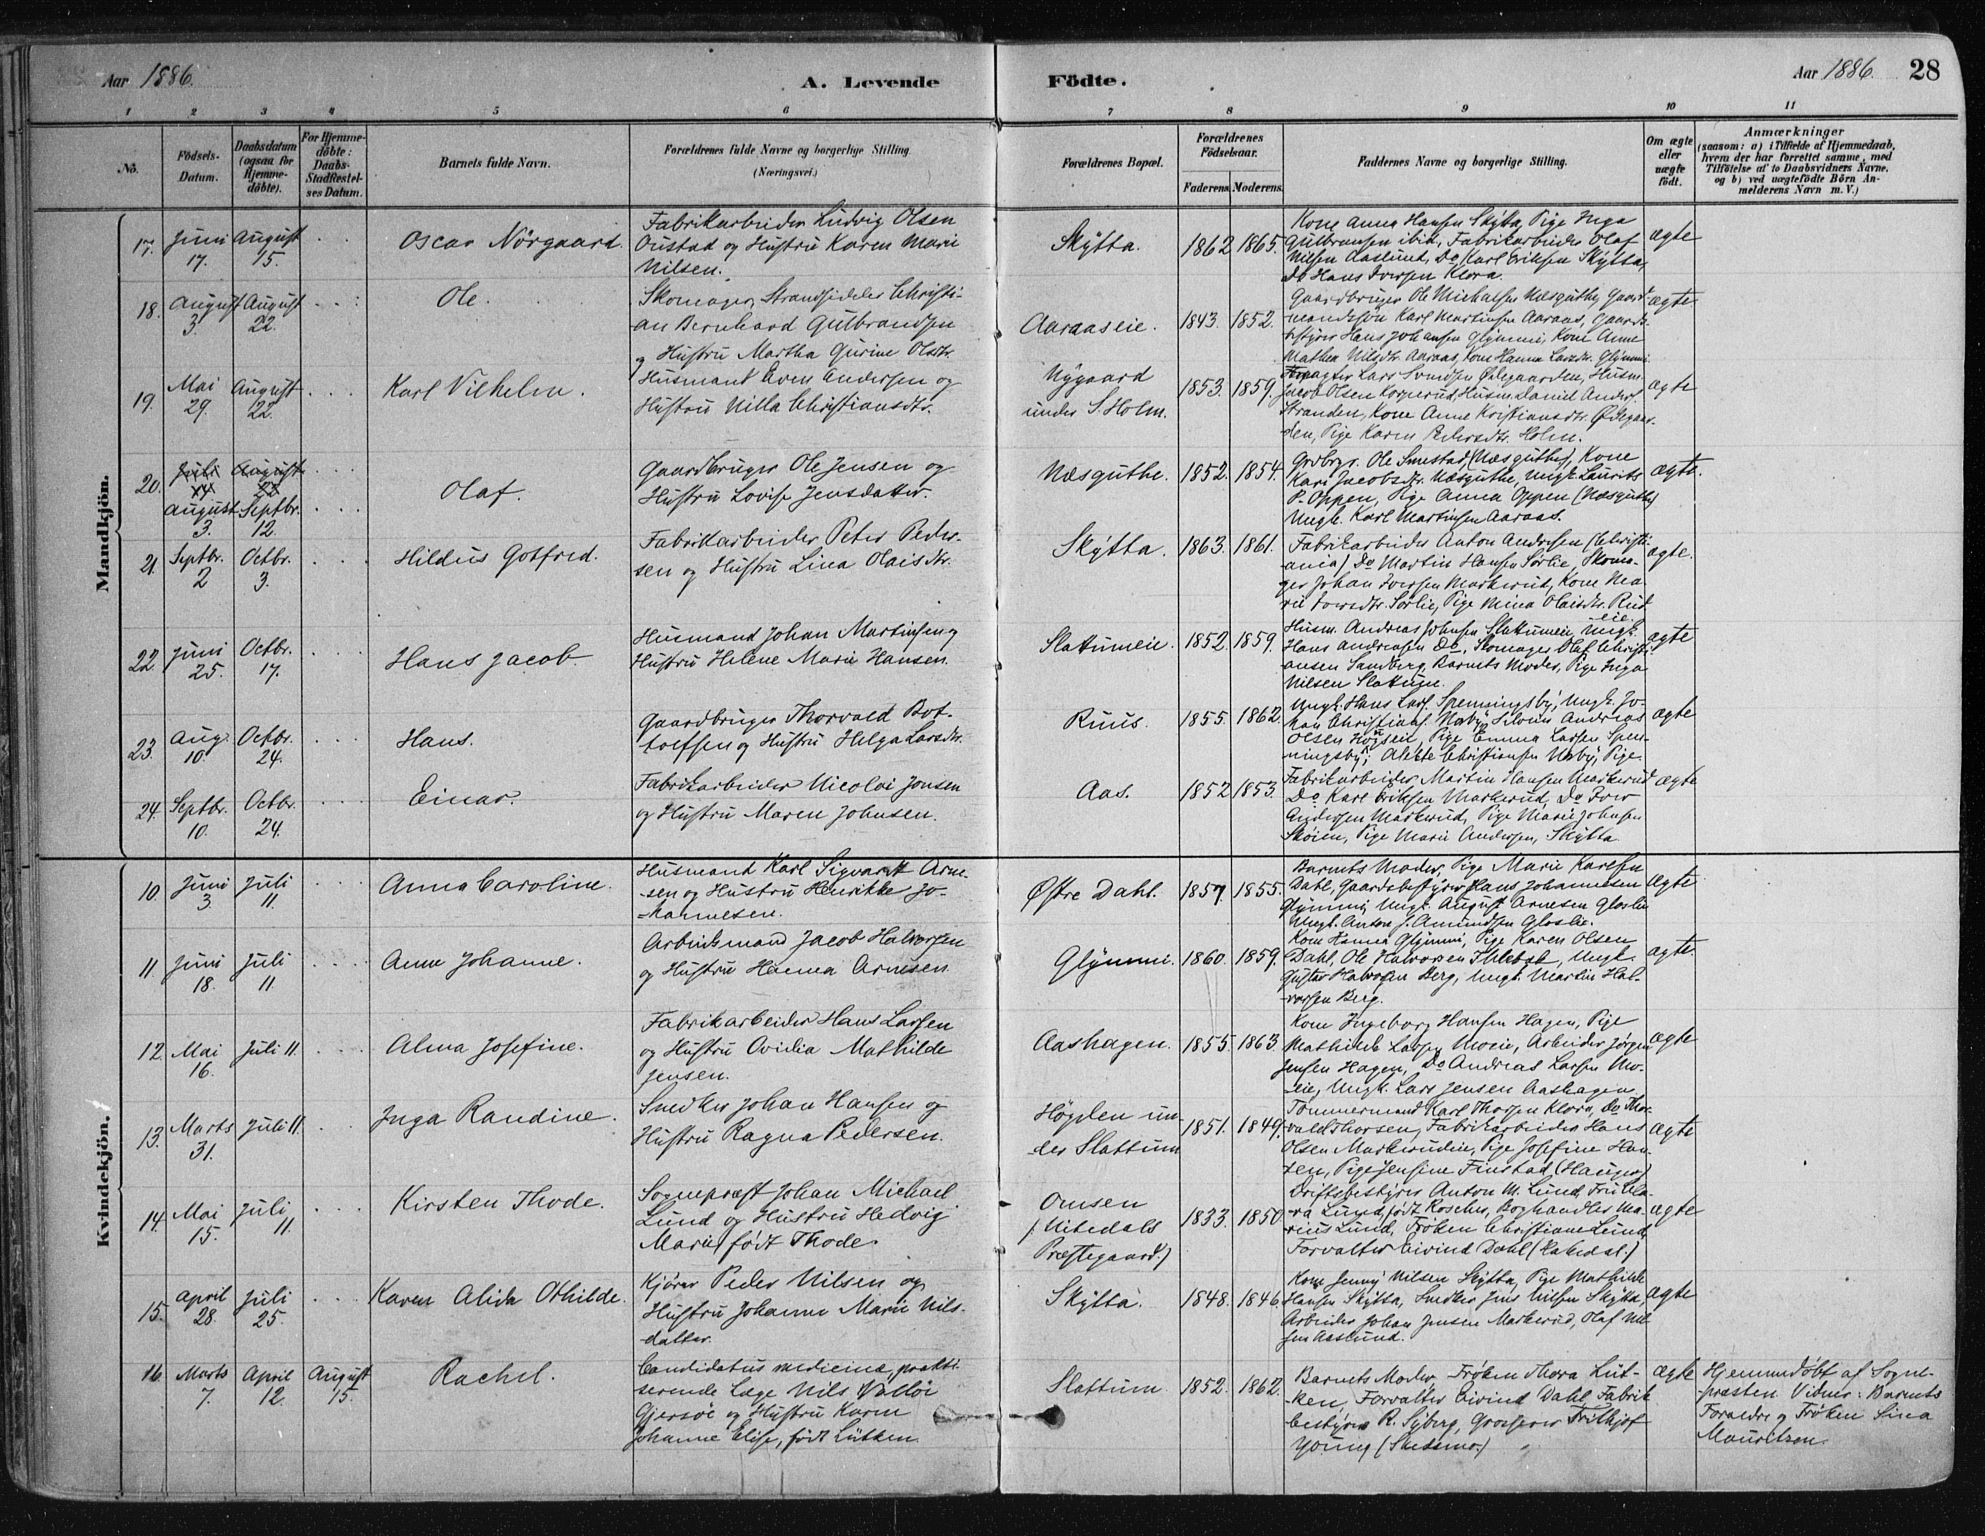 Aar 1886.
A. Levende
Födte.
Aar 1886.
28
1 2 3 4 5 6 7 8 9 10 11
No.
Födsels-
Datum.
Daabsdatum
(ogsaa for
Hjemme-
döbte).
For Hjemme-
döbte:
Daabs-
Stadfæstel-
ses Datum.
Barnets fulde Navn.
Forældrenes fulde Navne og borgerlige Stilling
(Næringsvei.)
Forældrenes Bopæl.
Forældrenes
Födselsaar.
Faderens. Moderens.
Faddernes Navne og borgerlige Stilling.
Om ægte
eller
uægte
födt.
Anmærkninger
(saasom: a) i Tilfælde af Hjemmedaab,
hvem der har forrettet samme, med
Tilföielse af to Daabsvidners Navne,
og b) ved uægtefödte Börn An-
melderens Navn m. V.)
Mandkjön.
17. Juni 17. August 15.
Oscar Nörgaard.
Fabrikarbeider Ludvig Olsen
Onstad og Hustru Karen Marie
Nilsen.
Skÿtta. 1862 1865.
Kone Anna Hansen Skÿtta, Pige Inga
Gulbransen ibid, Fabrikarbeider Olaf
Nilsen Aaslund, Do Karl Eriksen Skÿtta,
Do Hans Iversen Klora.
ægte
18. August 3. August 22.
Ole.
Skomager, Strandsidder Christi-
an Bernhard Gulbrandsen
og Hustru Martha Gurine Olsdtr.
Aaraaseie. 1843. 1852.
Gaardbruger Ole Michalsen Næsguthe, Gaard-
mandssøn Karl Martinsen Aaraas, Gaards-
bestyrer Hans Johansen Glÿmmi, Kone Anne
Mathea Nilsdtr. Aaraas, Kone Hanna Larsdtr. Glÿmmi
ægte
19. Mai 29. August 22.
Karl Vilhelm.
Husmand Even Andersen og
Hustru Nilla Christiansdtr.
Nÿgaard
under S. Holm.
1853. 1859.
Forpagter Lars Svendsen Ødegaarden, Husm.
Jacob Olsen Korperud, Husm. Daniel Anders.
Stranden, Kone Anne Kristiansdtr. Ødegaar-
den, Pige Karen Pedersdtr. Holm.
ægte
20. Juli 14 August 22
August 3. Septbr. 12.
Olaf.
Gaardbruger Ole Jensen og
Hustru Lovise Jensdatter.
Næsguthe. 1852. 1854.
Grdbrgr. Ole Smestad, (Næsguthe), Kone
Kari Jacobsdtr. Næsguthe, Ungk. Laurits
P. Oppen, Pige Anna Oppen (Næsguthe)
Ungk. Karl Martinsen Aaraas.
ægte.
21. Septbr. 2 Octbr. 3.
Hildus Gotfred.
Fabrikarbeider Peter Peder-
sen og Hustru Lina Olaisdtr.
Skÿtta. 1863. 1861.
Fabrikarbeider Anton Andresen (Christi-
ania) Do Martin Hansen Sørlie, Skoma-
ger Johan Iversen Markerud, Kone Ma-
rie Iversdtr. Sørlie, Pige Mina Olaisdtr. Rud-
eie.
ægte.
22 Juni 25. Octbr. 17.
Hans Jacob.
Husmand Johan Martinsen og
Hustru Helene Marie Hansen.
Slattumeie. 1852. 1859.
Husm. Andreas Johnsen Slattumeie, Ungk.
Hans Andreasen Do, Skomager Olaf Christi-
ansen Sandberg, Barnets Moder, Pige Inga
Nilsen Slattum.
ægte
23. Aug. 10. Octbr. 24.
Hans.
Gaardbruger Thorvald Bot-
tolfsen og Hustru Helga Larsdtr.
Ruus. 1855. 1862.
Ungk. Hans Lars. Spenningsbÿ, Ungk. Jo-
han Christians. Nabÿ, Andreas
Olsen, Pige Emma Larsen Spen-
ningsbÿ, Alette Christiansen Nabÿ, Pige
ægte
24. Septbr. 10. Octbr. 24.
Einar.
Fabrikarbeider Nicolai Jonsen
og Hustru Maren Johnsen.
Aas. 1852 1853.
Fabrikarbeider Martin Hansen Markerud
Do Karl Eriksen Markerud, Do Iver
Andersen Markerud, Pige Marie Johnsen
Skøien, Pige Marie Andersen, Skÿtta
ægte
Kvindekjön.
10. Juni 3. Juli 11.
Anna Caroline.
Husmand Karl Sigvardt Arne-
sen og Hustru Henrikke Jo-
hannesen.
Østre Dahl. 1857 1855.
Barnets Moder, Pige Marie Karlsen
Dahl, Gaardsbestyrer Hans Johannesen
Glÿmmi, Ungk. August Arnesen Gloslie
Ungk. Anton J. Amundsen Gloslie.
ægte
11. Juni 18. Juli 11.
Anne Johanne.
Arbeidsmand Jacob Halvorsen
og Hustru Hanna Arnesen.
Glÿmmi. 1860. 1859.
Kone Hanna Glÿmmi, Pige Karen Olsen
Dahl, Ole Halvorsen, Ungk.
Gustav Halvorsen Berg, Ungk. Martin Hal-
vorsen Berg.
ægte.
12. Mai 16. Juli 11.
Alma Josefine.
Fabrikarbeider Hans Larsen
og Hustru Ovidia Mathilde
Jensen.
Aashagen. 1855. 1863.
Kone Ingeborg Hansen Hagen, Pige
Mathilde Larsen Moeie, Arbeider Jørgen
Jensen Hagen, Do Andreas Larsen Mo-
eie, Ungk. Lars Jensen Aashagen.
ægte
13. Marts 31. Juli 11.
Inga Randine.
Snedker Johan Hansen og
Hustru Ragna Pedersen.
Högden un-
der Slattum
1851. 1849.
Tömmermand Karl Thorsen Klora, Do Thor-
vald Thorsen, Fabrikarbeider Hans
Olsen Markerudeie, Pige Josefine Han-
sen, Pige Jensine Finstad (Hauger)
ægte
14. Mai 15. Juli 11.
Kirsten Thode.
Sognepræst Johan Michael
Lund og Hustru Hedvig
Marie, født Thode.
Omsen
(Nitedals
Præstegaard.)
1833. 1850
Driftsbestyrer Anton M. Lund, Fru Cla-
ra Lund, født Roscher, Boghandler Ma-
rius Lund, Frøken Christiane Lund,
Forvalter Eivind Dahl (Hakedal.)
ægte
15. April 28. Juli 25.
Karen Alida Othilde.
Kjører Peder Nilsen og
Hustru Johanne Marie Nils-
datter.
Skÿtta. 1848. 1846.
Kone Jenny Nilsen Skÿtta, Pige Mathilde
Hansen Skÿtta, Snedker Jens Nilsen Skÿtta,
Arbeider Johan Jensen Markerud, Olaf Nil-
sen Aaslund.
ægte
16 Marts 7. April 12. August 15.
Rachel.
Candidatus medicinæ, prakti-
serende Læge Nils
Gjersøe og Hustru Karen
Johanne Elise, født Lütken.
Slattum 1852. 1862.
Barnets Moder, Frøken Thora Lüt-
ken, Forvalter Eivind Dahl, Fabrik-
bestyrer R. Syberg, Grosserer Frithjof
Young (Skedsmo.)
ægte
Hjemmedøbt af Sogne-
præsten. Vidner: Barnets
Forældre og Frøken Lina
Mauritzen.